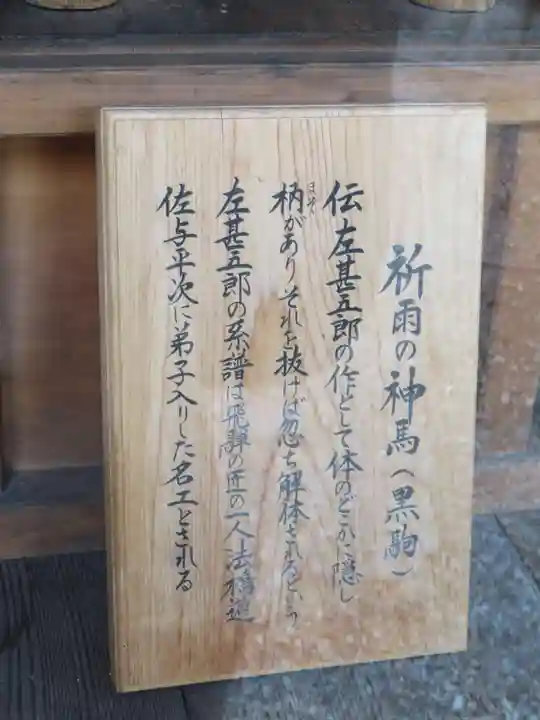 祈雨の神馬(黒駒)
伝 左甚五郎の作として体のどこかに隠し
柄がありそれを抜けば忽ち解体されるという
左甚五郎の系譜は飛騨の匠の一人法橋遊
佐与平次に弟子入りした名工とされる